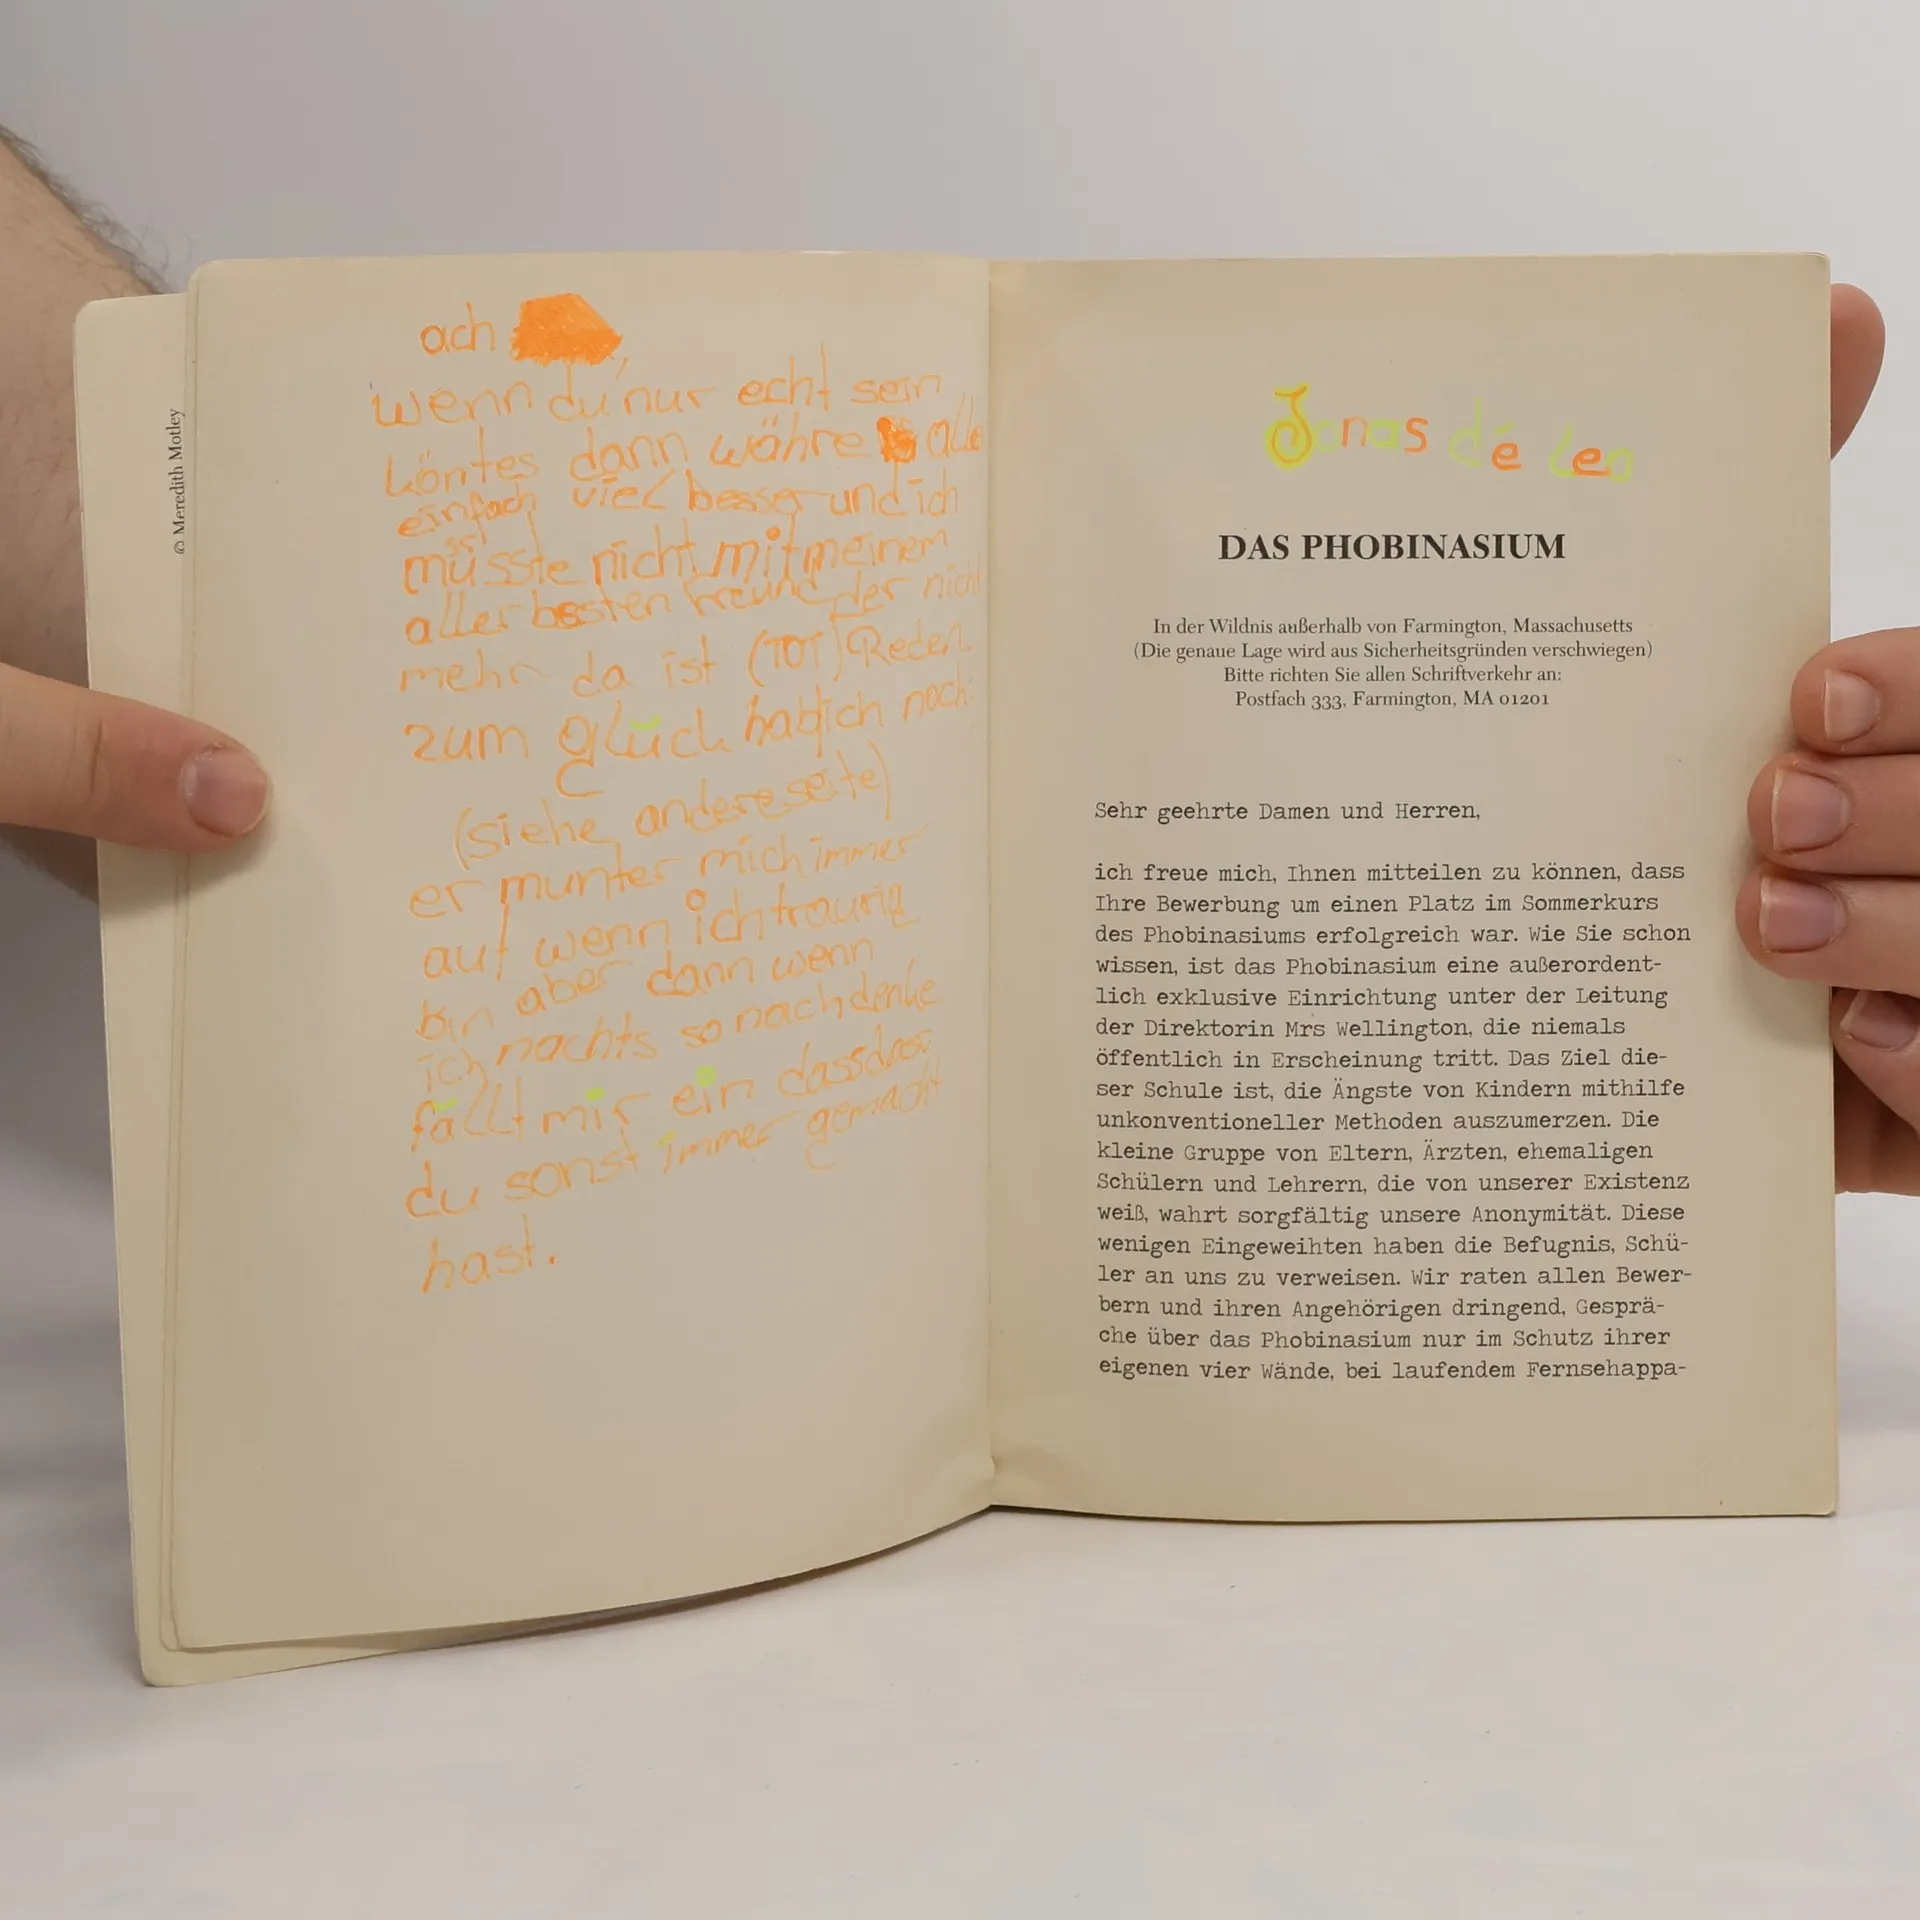 © Meredith Motley
ach
wenn du nur echt sein
köntes dann währe alle
einfach viel besser und ich
müsste nicht mit meinem
aller besten freund der nicht
mehr da ist (TOT) Reden.
zum glück hab ich noch
(siehe andere seite)
er munter mich immer
auf wenn ich traurig
bin aber dann wenn
ich nachts so nachdenke
fällt mir ein dass das
du sonst immer gemacht
hast.
Jonas dé Leo
DAS PHOBINASIUM
In der Wildnis außerhalb von Farmington, Massachusetts
(Die genaue Lage wird aus Sicherheitsgründen verschwiegen)
Bitte richten Sie allen Schriftverkehr an:
Postfach 333, Farmington, MA 01201
Sehr geehrte Damen und Herren,
ich freue mich, Ihnen mitteilen zu können, dass
Ihre Bewerbung um einen Platz im Sommerkurs
des Phobinasiums erfolgreich war. Wie Sie schon
wissen, ist das Phobinasium eine außerordent-
lich exklusive Einrichtung unter der Leitung
der Direktorin Mrs Wellington, die niemals
öffentlich in Erscheinung tritt. Das Ziel die-
ser Schule ist, die Ängste von Kindern mithilfe
unkonventioneller Methoden auszumerzen. Die
kleine Gruppe von Eltern, Ärzten, ehemaligen
Schülern und Lehrern, die von unserer Existenz
weiß, wahrt sorgfältig unsere Anonymität. Diese
wenigen Eingeweihten haben die Befugnis, Schü-
ler an uns zu verweisen. Wir raten allen Bewer-
bern und ihren Angehörigen dringend, Gesprä-
che über das Phobinasium nur im Schutz ihrer
eigenen vier Wände, bei laufendem Fernsehappa-